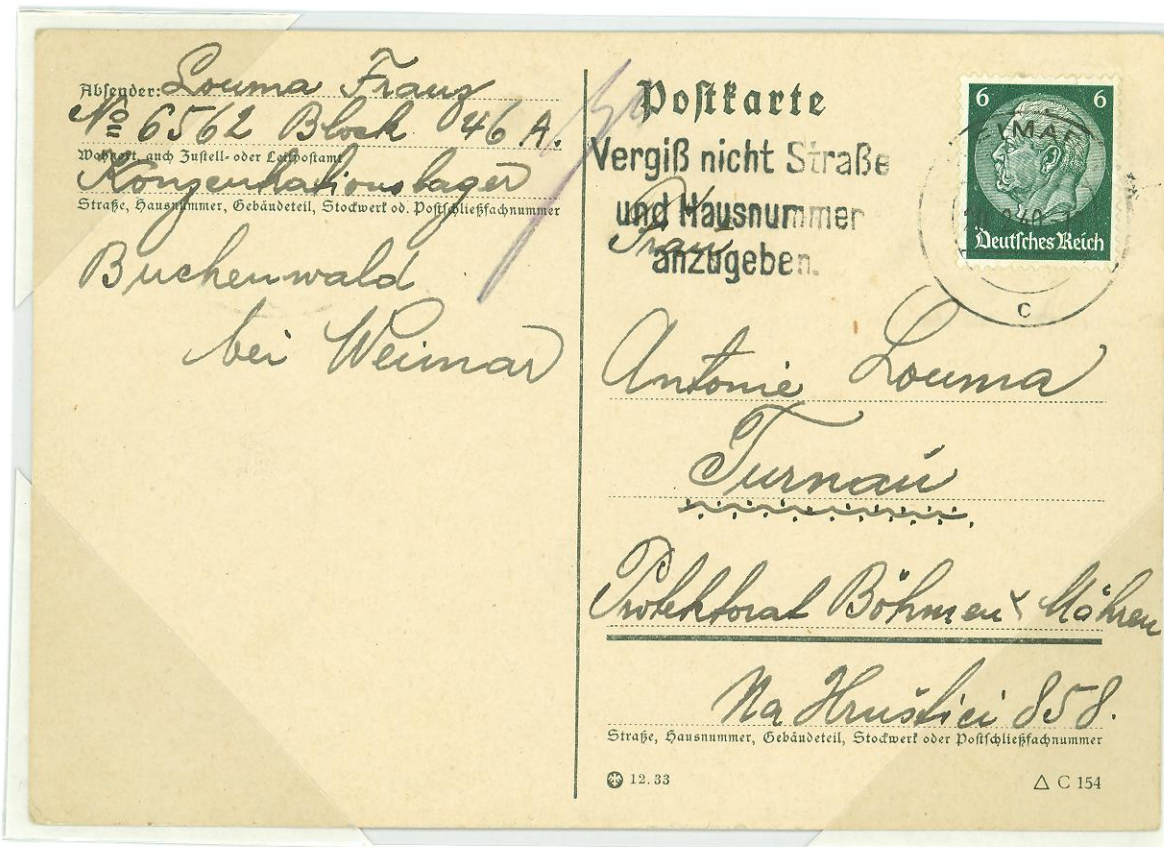 Absender: Louma Franz
No 6562 Block 46 A.
Wohnort, auch Zustell- oder Leitpostamt
Konzentrationslager
Straße, Hausnummer, Gebäudeteil, Stockwerk od. Postschließfachnummer
Buchenwald
bei Weimar
Postkarte
Vergiß nicht Straße
und Hausnummer
anzugeben.
6 6
Deutsches Reich
c
Frau
Antonie Louma
Turnau
Protektorat Böhmen & Mähren
Na Hruštici 858.
Straße, Hausnummer, Gebäudeteil, Stockwerk oder Postschließfachnummer
12.33
△ C 154